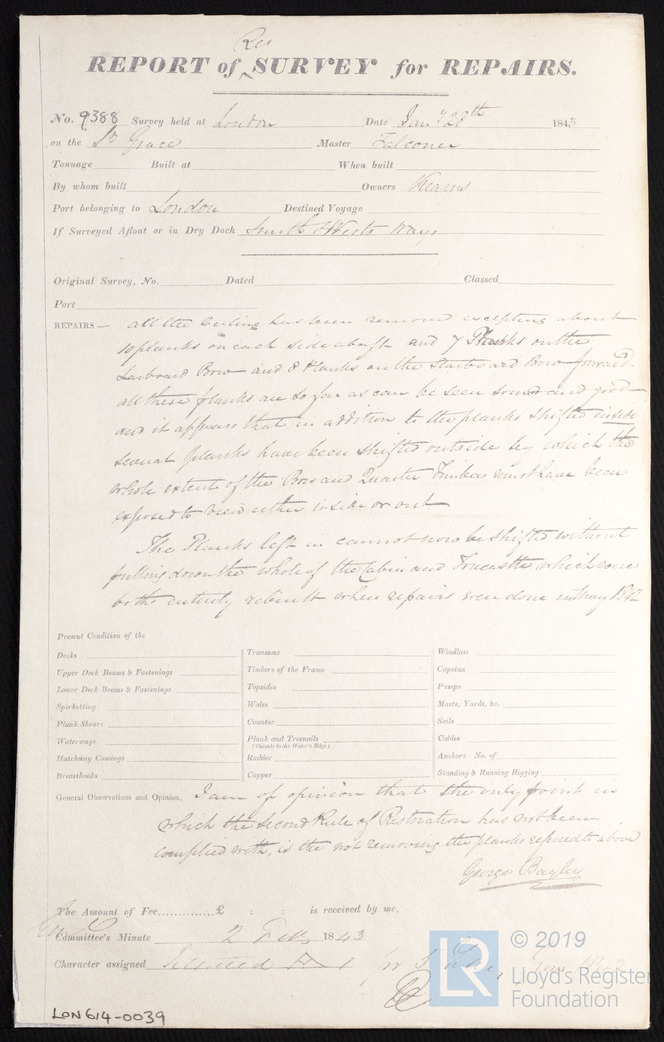 Re
REPORT of SURVEY for REPAIRS.
No. 9388 Survey held at London Date Jany 28th 1843
on the Sr Grace Master Falconer
Tonnage Built at When built
By whom built Owners Kearns
Port belonging to London Destined Voyage
If Surveyed Afloat or in Dry Dock Smith & Wests Ways
Original Survey, No. Dated Classed
Port
REPAIRS— all the Ceiling has been removed excepting about
10 planks on each side abaft and 7 Planks on the
Larboard Bow and 8 Planks on the Starboard Bow forward.
all these planks are so far as can be seen sound and good
and it appears that in addition to the planks shifted inside
several planks have been shifted outside by which the
whole extent of the Bow and Quarter Timbers must have been
exposed to view either inside or out
The Planks left in cannot now be shifted without
pulling down the whole of the Cabin and Forecastle which were
both entirely rebuilt when repairs were done in May 1842
Present Condition of the
Decks Transoms Windlass
Upper Deck Beams & Fastenings Timbers of the Frame Capstan
Lower Deck Beams & Fastenings Topsides Pumps
Spirketting Wales Masts, Yards, &c.
Plank Shears Counter Sails
Waterways Plank and Treenails Cables
(Outside to the Water's Edge)
Hatchway Comings Rudder Anchors No. of
Breasthooks Copper Standing & Running Rigging
General Observations and Opinion, I am of opinion that the only point in
which the second Rule of Restoration has not been
complied with, is the not removing the planks referred to above
George Bayley
The Amount of Fee............£ : : is received by me,
Committee's Minute 2 Feby 1843
Character assigned
LON614-0039
LR
© 2019
Lloyd's Register
Foundation